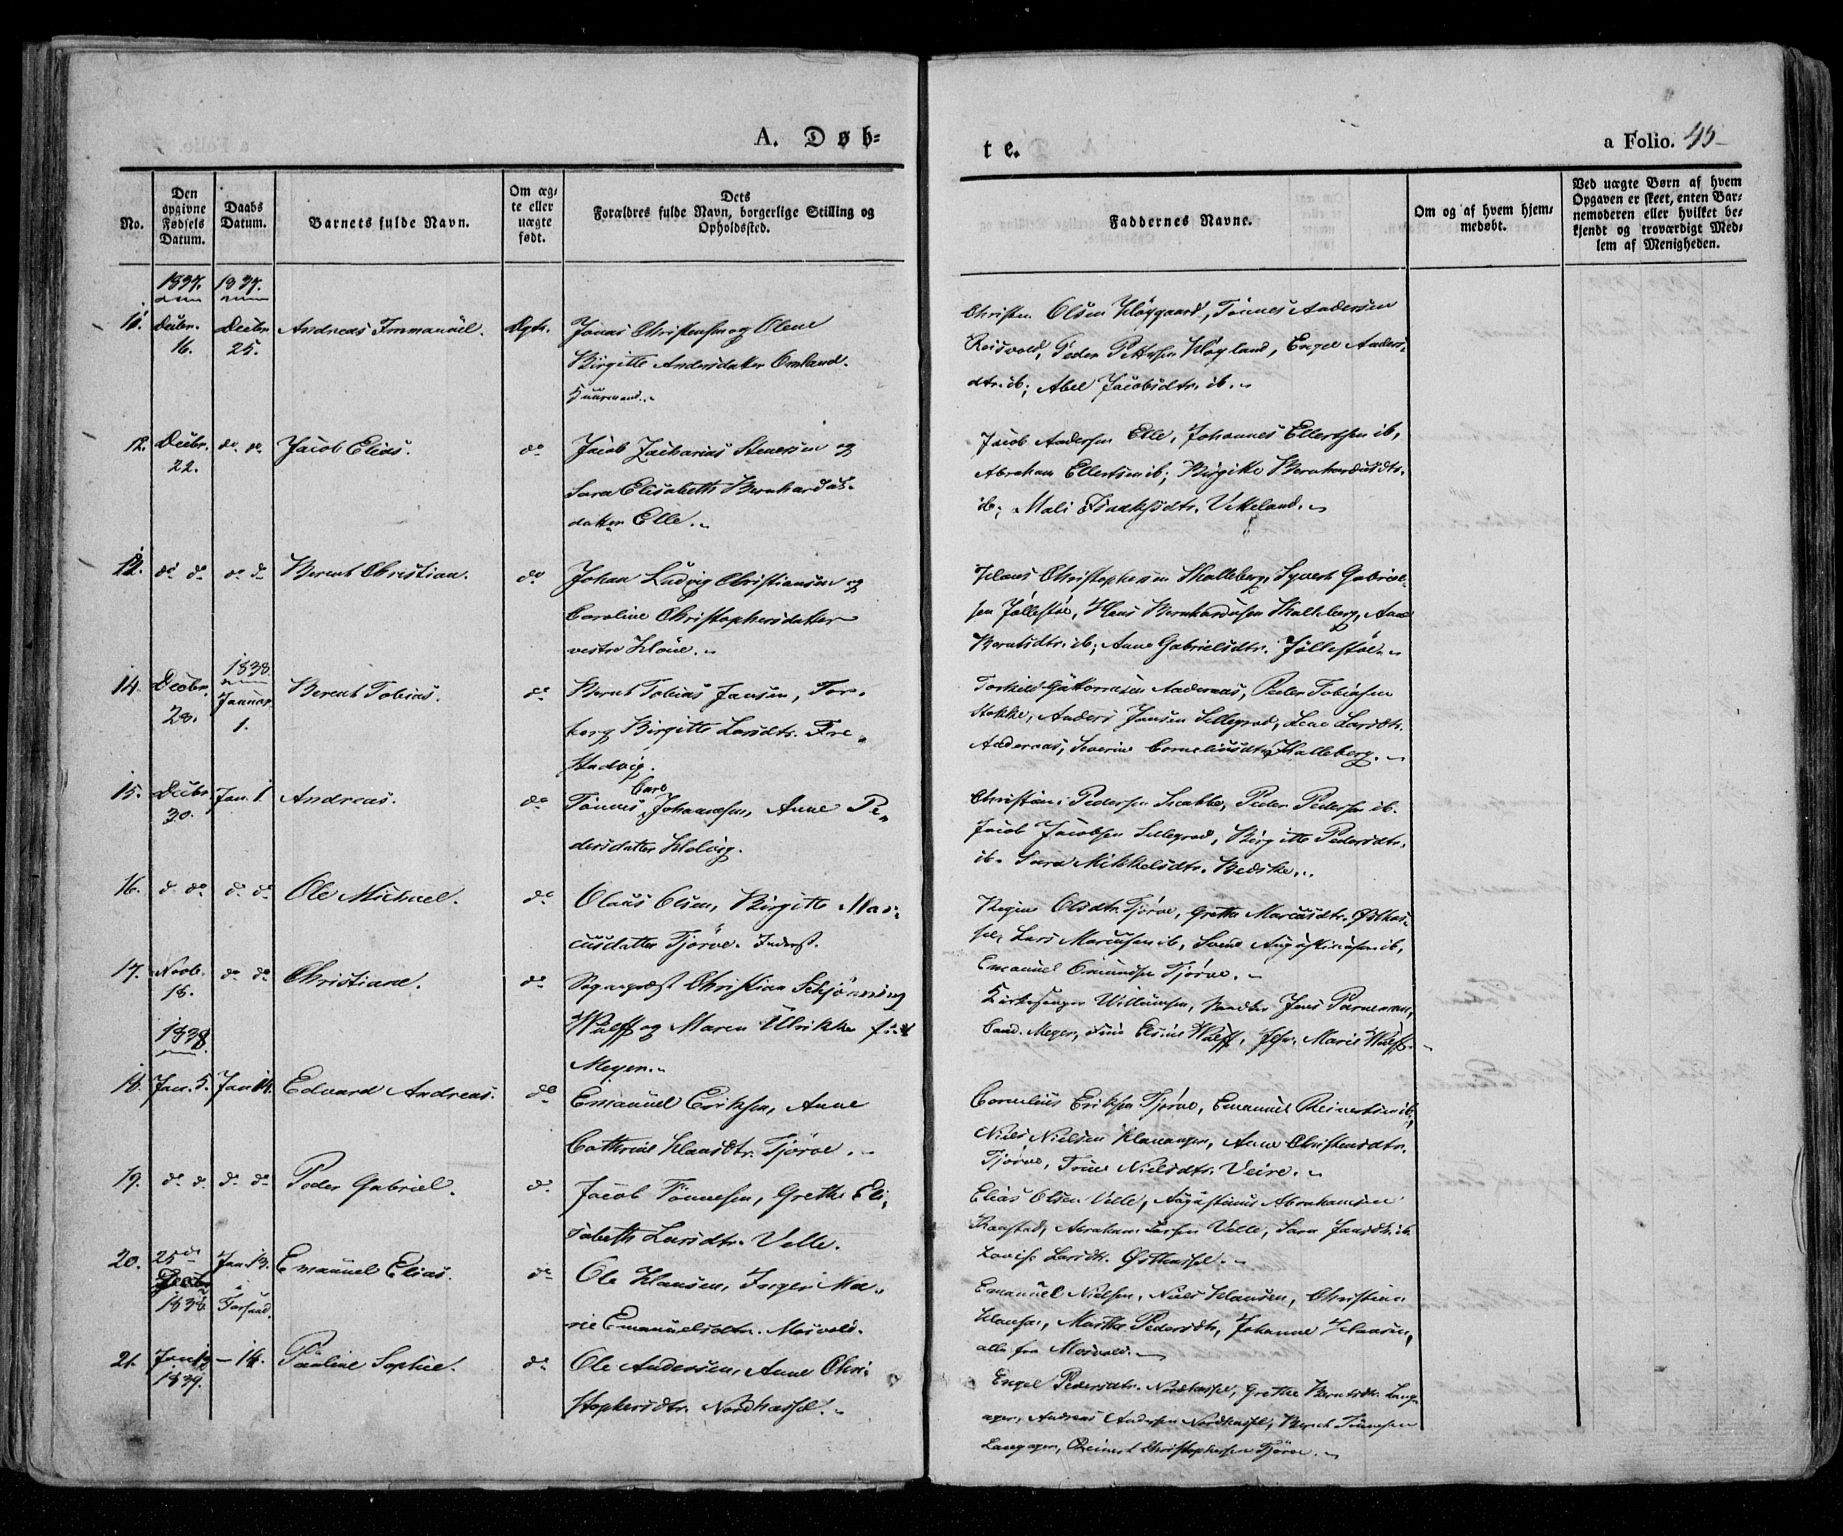 A. Døb=
te.
a Folio. 45
No.
Den opgivne Fødsels Datum.
Daabs Datum.
Barnets fulde Navn.
Om æg-
te eller
uægte
født.
Dets
Forældres fulde Navn, borgerlige Stilling og
Opholdssted.
Faddernes Navne.
Om og af hvem hjem-
medøbt.
Ved uægte Børn af hvem
Opgaven er skeet, enten Bar-
nemoderen eller hvilket be-
kjendt og troværdigt Med-
lem af Menigheden.
1837. 1837.
11. Decbr. 16. Decbr. 25. Andreas Immanuel. Ægte. Jonas Christensen og Olene
Birgitte Andersdatter Omland.
Huusmand.
Christen Olsen Høygaard, Tønnes Andersen
Reisvold, Peder Pettersen Høyland, Engel Anders-
dtr. ib; Abel Jacobsdtr. ib.
12. Decbr. 22. do. do. Jacob Elias. do Jacob Zacharias Stensen og
Sara Elisabeth Bernhardus-
datter Elle.
Jacob Andersen Elle, Johannes Ellertsen ib,
Abraham Ellertsen ib; Birgitte Bernhardusdtr.
ib; Mali Isaaksdtr. Vetteland.
13. do do do do Berent Christian. do Johan Ludvig Christiansen og
Caroline Christophersdatter
vestre
Claus Christophersen Skalleberg, Syvert Gabriel-
sen Jøllestøe, Hans Bernhardusen Skalleberg, Ane
Berntsdtr. ib; Anne Gabrielsdtr. Jøllestøe.
14. Decbr. 28. 1838. Januar 1. Berent Tobias. do Bernt Tobias Jansen, Tor-
borg Birgitte Larsdtr. Fre-
Andersen, Peder Tobiasen
Stokke, Anders Jansen Sellegrod, Lene Larsdtr.
Severine Corneliusdtr. Skalleberg.
15. Decbr. 30. Jan. 1 Andreas. do Tønnes Caro Johannesen, Anne Pe-
dersdatter
Christian Pedersen Peder Pedersen ib.
Jacob Jacobsen Sellegrod, Birgitte Pedersdtr.
ib. Sara Mikkelsdtr.
16. do do do do Ole Michael. do Olaus Olsen, Birgitte Mar-
cusdatter Tjørve. Inderst.
Olsdtr. Tjørve, Grethe Marcusdtr. Østhas-
sel, Lars Marcusen ib, Augustinusen ib,
Emanuel Omundsen Tjørve.
17. Novb. 18. do do Christiane. do Sognepræst Christian Schjønning
Wulff og Maren Ulrikke
Meyer.
Kirkesanger Willumsen,
Cand. Meyer, Wulff, Jfr. Marie Wulff.
1838.
18. Jan. 5. Jan. 14. Edvard Andreas. do Emanuel Eriksen, Anne
Cathrine Hansdtr. Tjørve.
Cornelius Eriksen Tjørve, Emanuel Reinertsen ib,
Niels Nielsen Anne Christensdtr.
Tjørve, Trine Nielsdtr. Veire.
19. do do do do Peder Gabriel. do Jacob Tønnesen, Grethe Eli-
sabeth Larsdtr. Velle.
Elias Olsen Velle, Augustinus Abrahamsen
Abraham Larsen Velle, Sara Jansdtr. ib.
Lovise Larsdtr. Østhassel.
20. 25de Decbr. 1838 Jan. 13. Farsund Emanuel Elias. do Ole Hansen, Inger Ma-
rie Emanuelsdtr. Mosvold.
Emanuel Nielsen, Niels Hansen, Christian
Hansen, Marthe Pedersdtr, Johanne Hansen,
alle fra Mosvold.
21. Jan. 1839. – 14. Pauline Sophie. do Ole Andersen, Anne Chri-
stophersdtr. Nordhassel.
Engel Pedersdtr. Nordhassel, Grethe Berntsdtr. Lang-
ager, Andreas Andersen Nordhassel, Berent Tønnesen
Langager, Reinert Christophersen Tjørve.